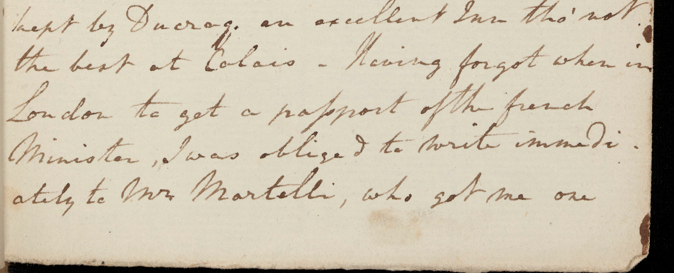 kept by Ducrocq. an excellent Inn tho' not
the best at Calais - Having forgot when in
London to get a passport of the french
Minister, I was obliged to write immedi-
ately to Mr Martelli, who got me one